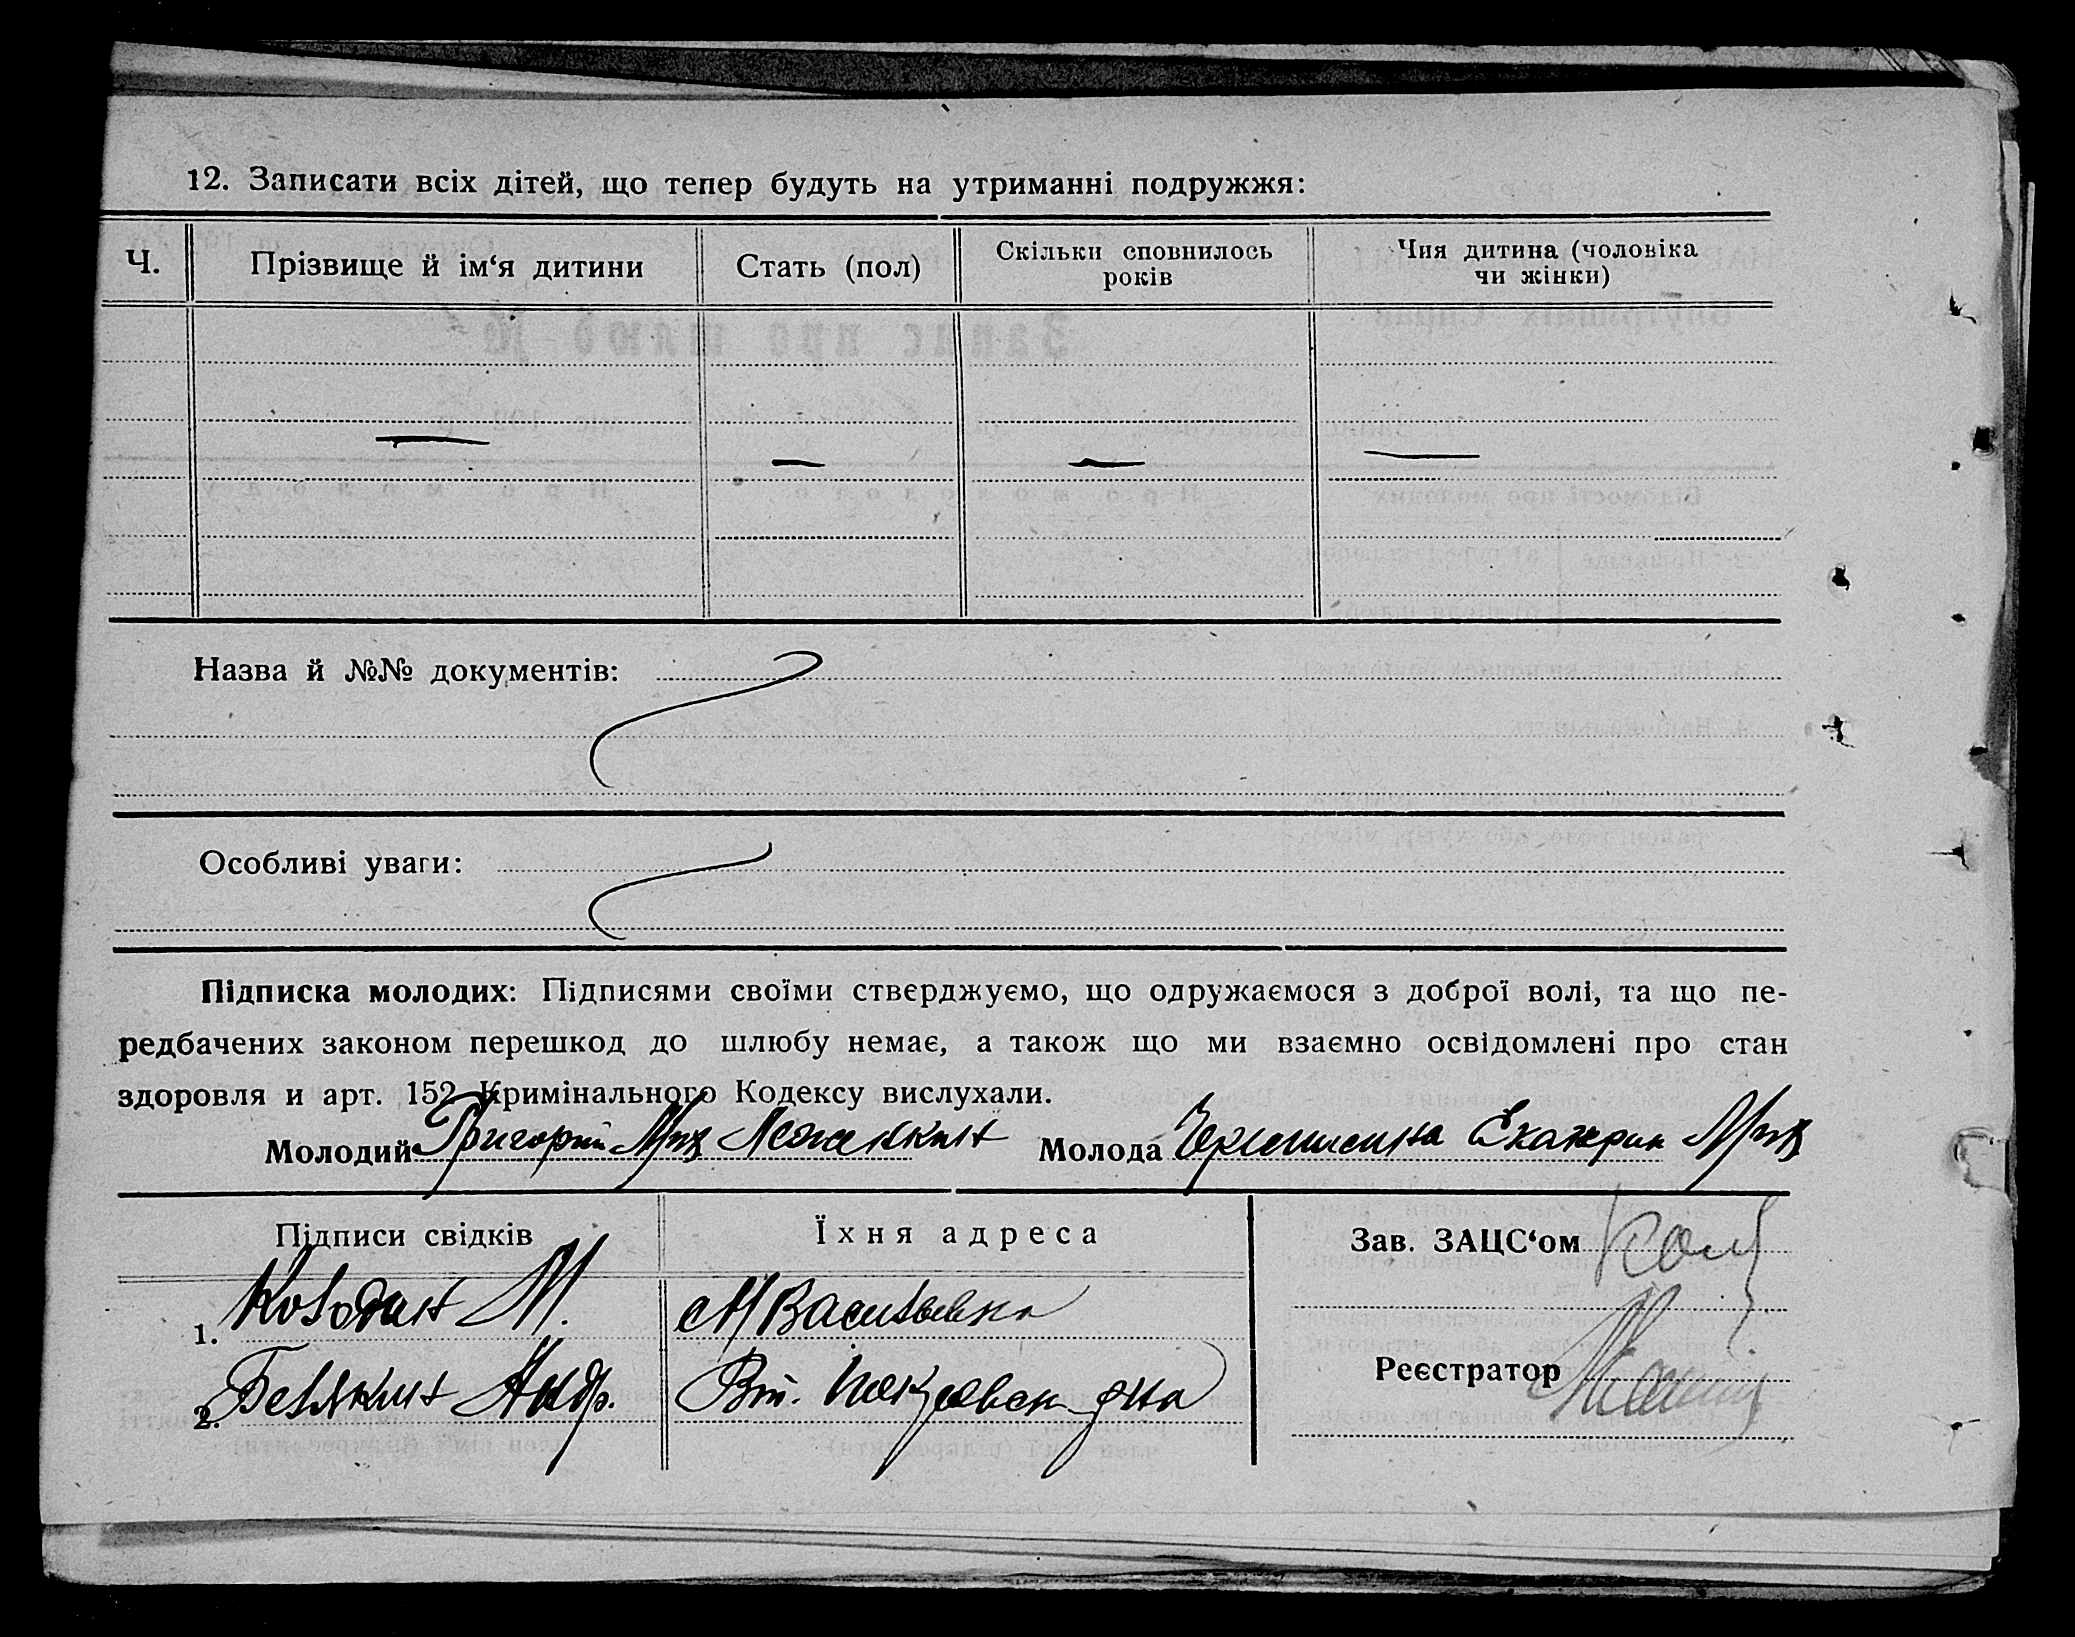 12. Записати всіх дітей, що тепер будуть на утриманні подружжя:
Ч. Прізвище й ім‘я дитини Стать (пол) Скільки сповнилось років Чия дитина (чоловіка чи жінки)
— — — —
Назва й №№ документів:
Особливі уваги:
Підписка молодих: Підписями своїми стверджуємо, що одружаємося з доброї волі, та що пе-
редбачених законом перешкод до шлюбу немає, а також що ми взаємно освідомлені про стан
здоровля и арт. 152 Кримінального Кодексу вислухали.
Молодий Григорий Молода Екатерин
Підписи свідків Їхня адреса Зав. ЗАЦС‘ом
1. Колодин М. М Васильевка
2. Белякин Андр. Реєстратор